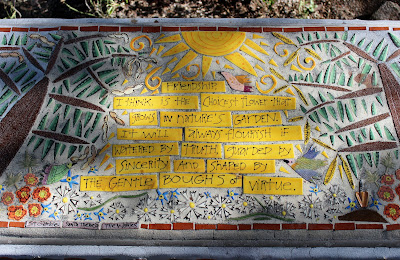 FRIENDSHIP
I THINK, IS THE CHOICEST FLOWER THAT
GROWS IN NATURE'S GARDEN.
IT WILL ALWAYS FLOURISH IF
WATERED BY TRUTH GUARDED BY
SINCERITY AND SHAPED BY
THE GENTLE BOUGHS OF VIRTUE.